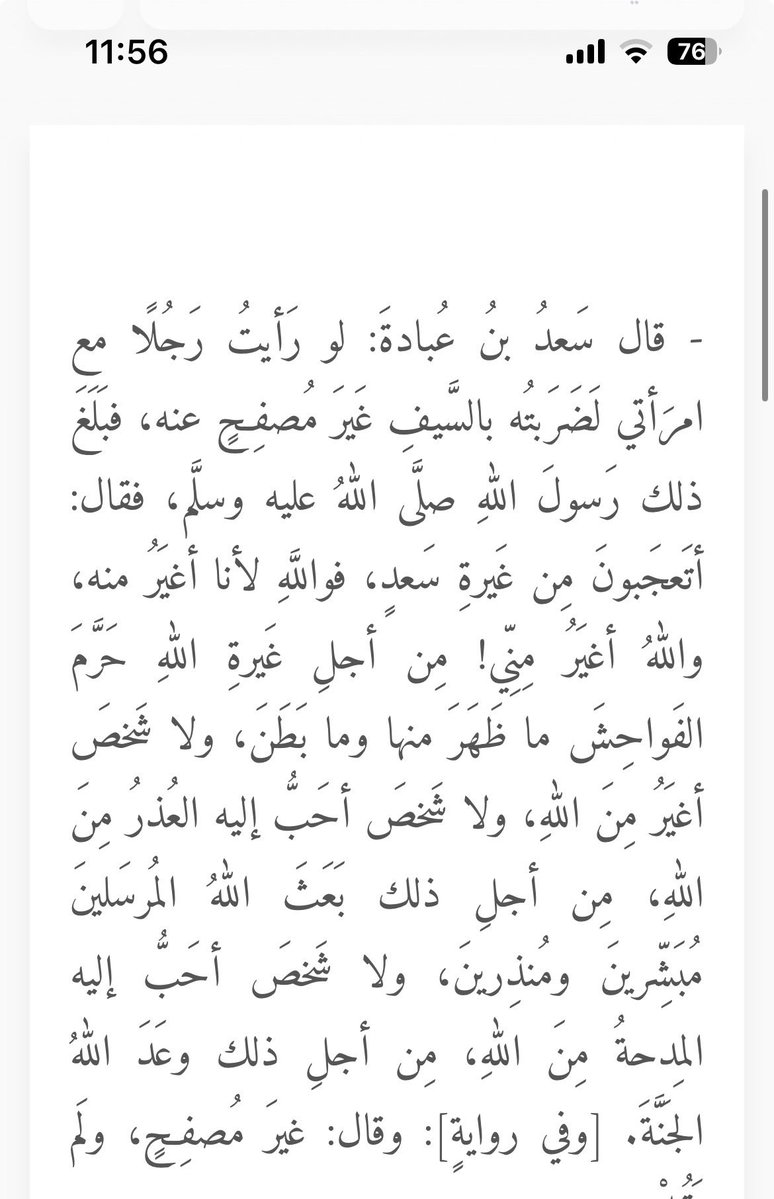 11:56
76
- قال سَعدُ بنُ عُبادةَ: لو رَأيتُ رَجُلًا مع
امرَأتي لَضَرَبتُه بالسَّيفِ غَيرَ مُصفِحٍ عنه، فبَلَغَ
ذلك رَسولَ اللهِ صلَّى اللهُ عليه وسلَّم، فقال:
أتَعجَبونَ مِن غَيرةِ سَعدٍ، فواللَّهِ لأنا أغيَرُ منه،
واللهُ أغيَرُ مِنِّي! مِن أجلِ غَيرةِ اللهِ حَرَّمَ
الفَواحِشَ ما ظَهَرَ منها وما بَطَنَ، ولا شَخصَ
أغيَرُ مِنَ اللهِ، ولا شَخصَ أحَبُّ إليه العُذرُ مِنَ
اللهِ، مِن أجلِ ذلك بَعَثَ اللهُ المُرسَلينَ
مُبَشِّرينَ ومُنذِرينَ، ولا شَخصَ أحَبُّ إليه
المِدحةُ مِنَ اللهِ، مِن أجلِ ذلك وعَدَ اللهُ
الجَنَّةَ. [وفي روايةٍ]: وقال: غيرَ مُصفِحٍ، ولَم